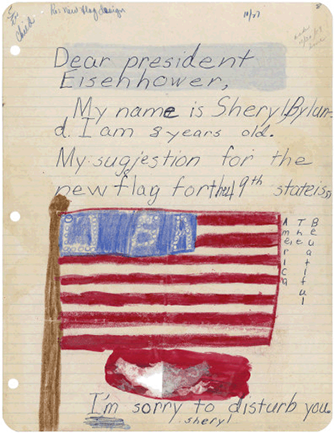 Child
New flag designs
Dear president
Eisenhower,
My name is Sheryl Bylun-
d. I am 8 years old.
My sugjestion for the
new flag for the 49th state is,
USA
America
The
Beautiful
I'm sorry to disturb you
Sheryl